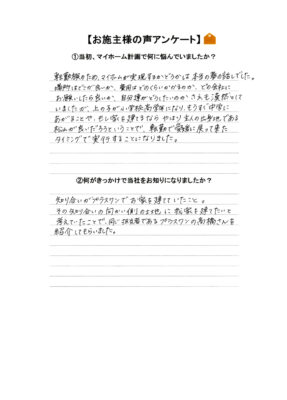 【お施主様の声アンケート】
①当初、マイホーム計画で何に悩んでいましたか？
転勤族のため、マイホームが実現するかどうかは本当の夢の話しでした。
場所はどこが良いか、費用はどのくらいかかるのか、どの会社に
お願いしたら良いか、自分達がどうしたいのかさえも漠然として
いましたが、上の子が小学校高学年になり、もうすぐ中学に
あがることや、もし家を建てるなら やはり主人の出身地である
松山が良いだろうということで、転勤で愛媛に戻って来た
タイミングで実行することになりました。
②何がきっかけで当社をお知りになりましたか？
知り合いがプラスワンでお家を建てていたこと。
その知り合いの向かい側の土地に私も家を建てたいと
考えていたことで、同じ担当者であるプラスワンの高橋さんを
紹介してもらいました。